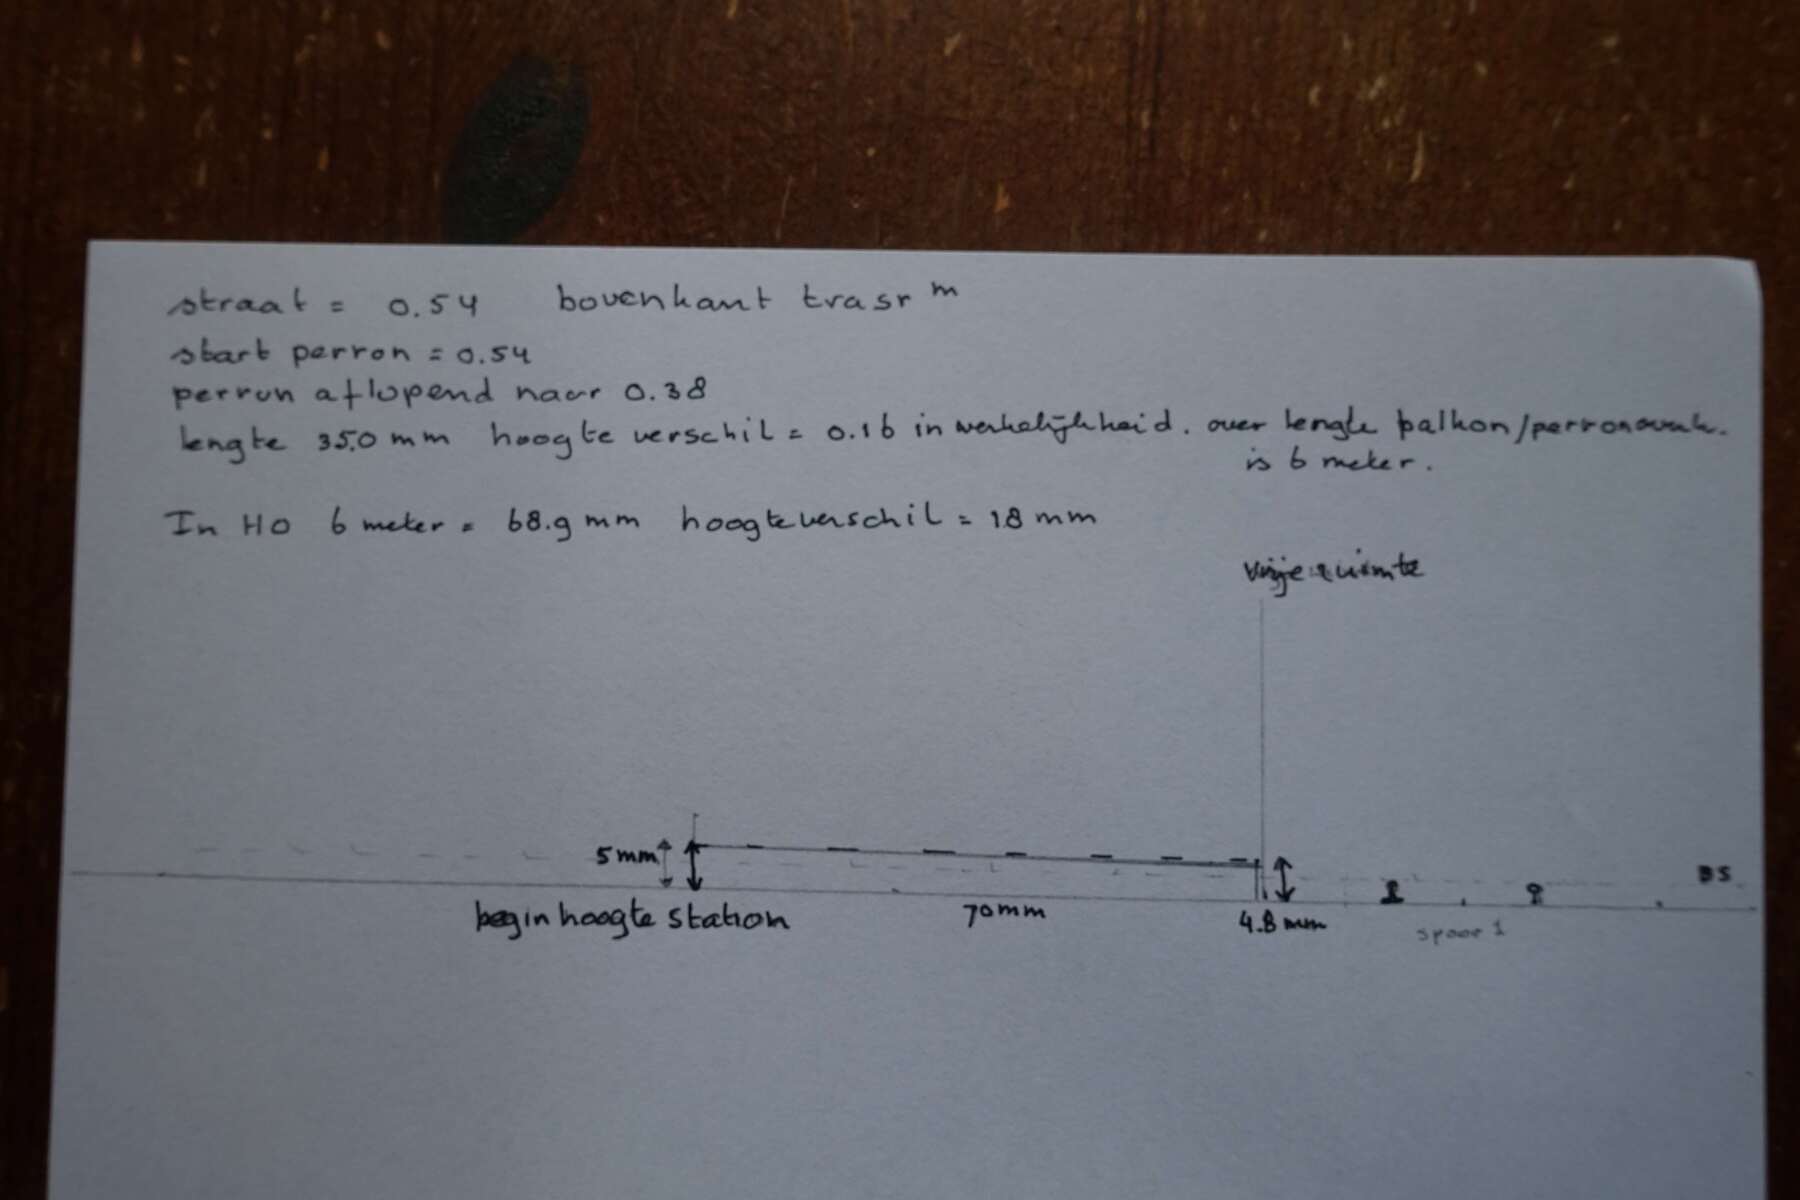 straat = 0.54 bovenkant trasr m
start perron = 0.54
perron aflopend naar 0.38
lengte 350 mm hoogte verschil = 0.16 in werkelijkheid. over lengte balkon/
is 6 meter.
In HO 6 meter = 68.9 mm hoogteverschil = 1.8 mm
vrije ruimte
5 mm
BS
begin hoogte station
70mm
4.8 mm
spoor 1